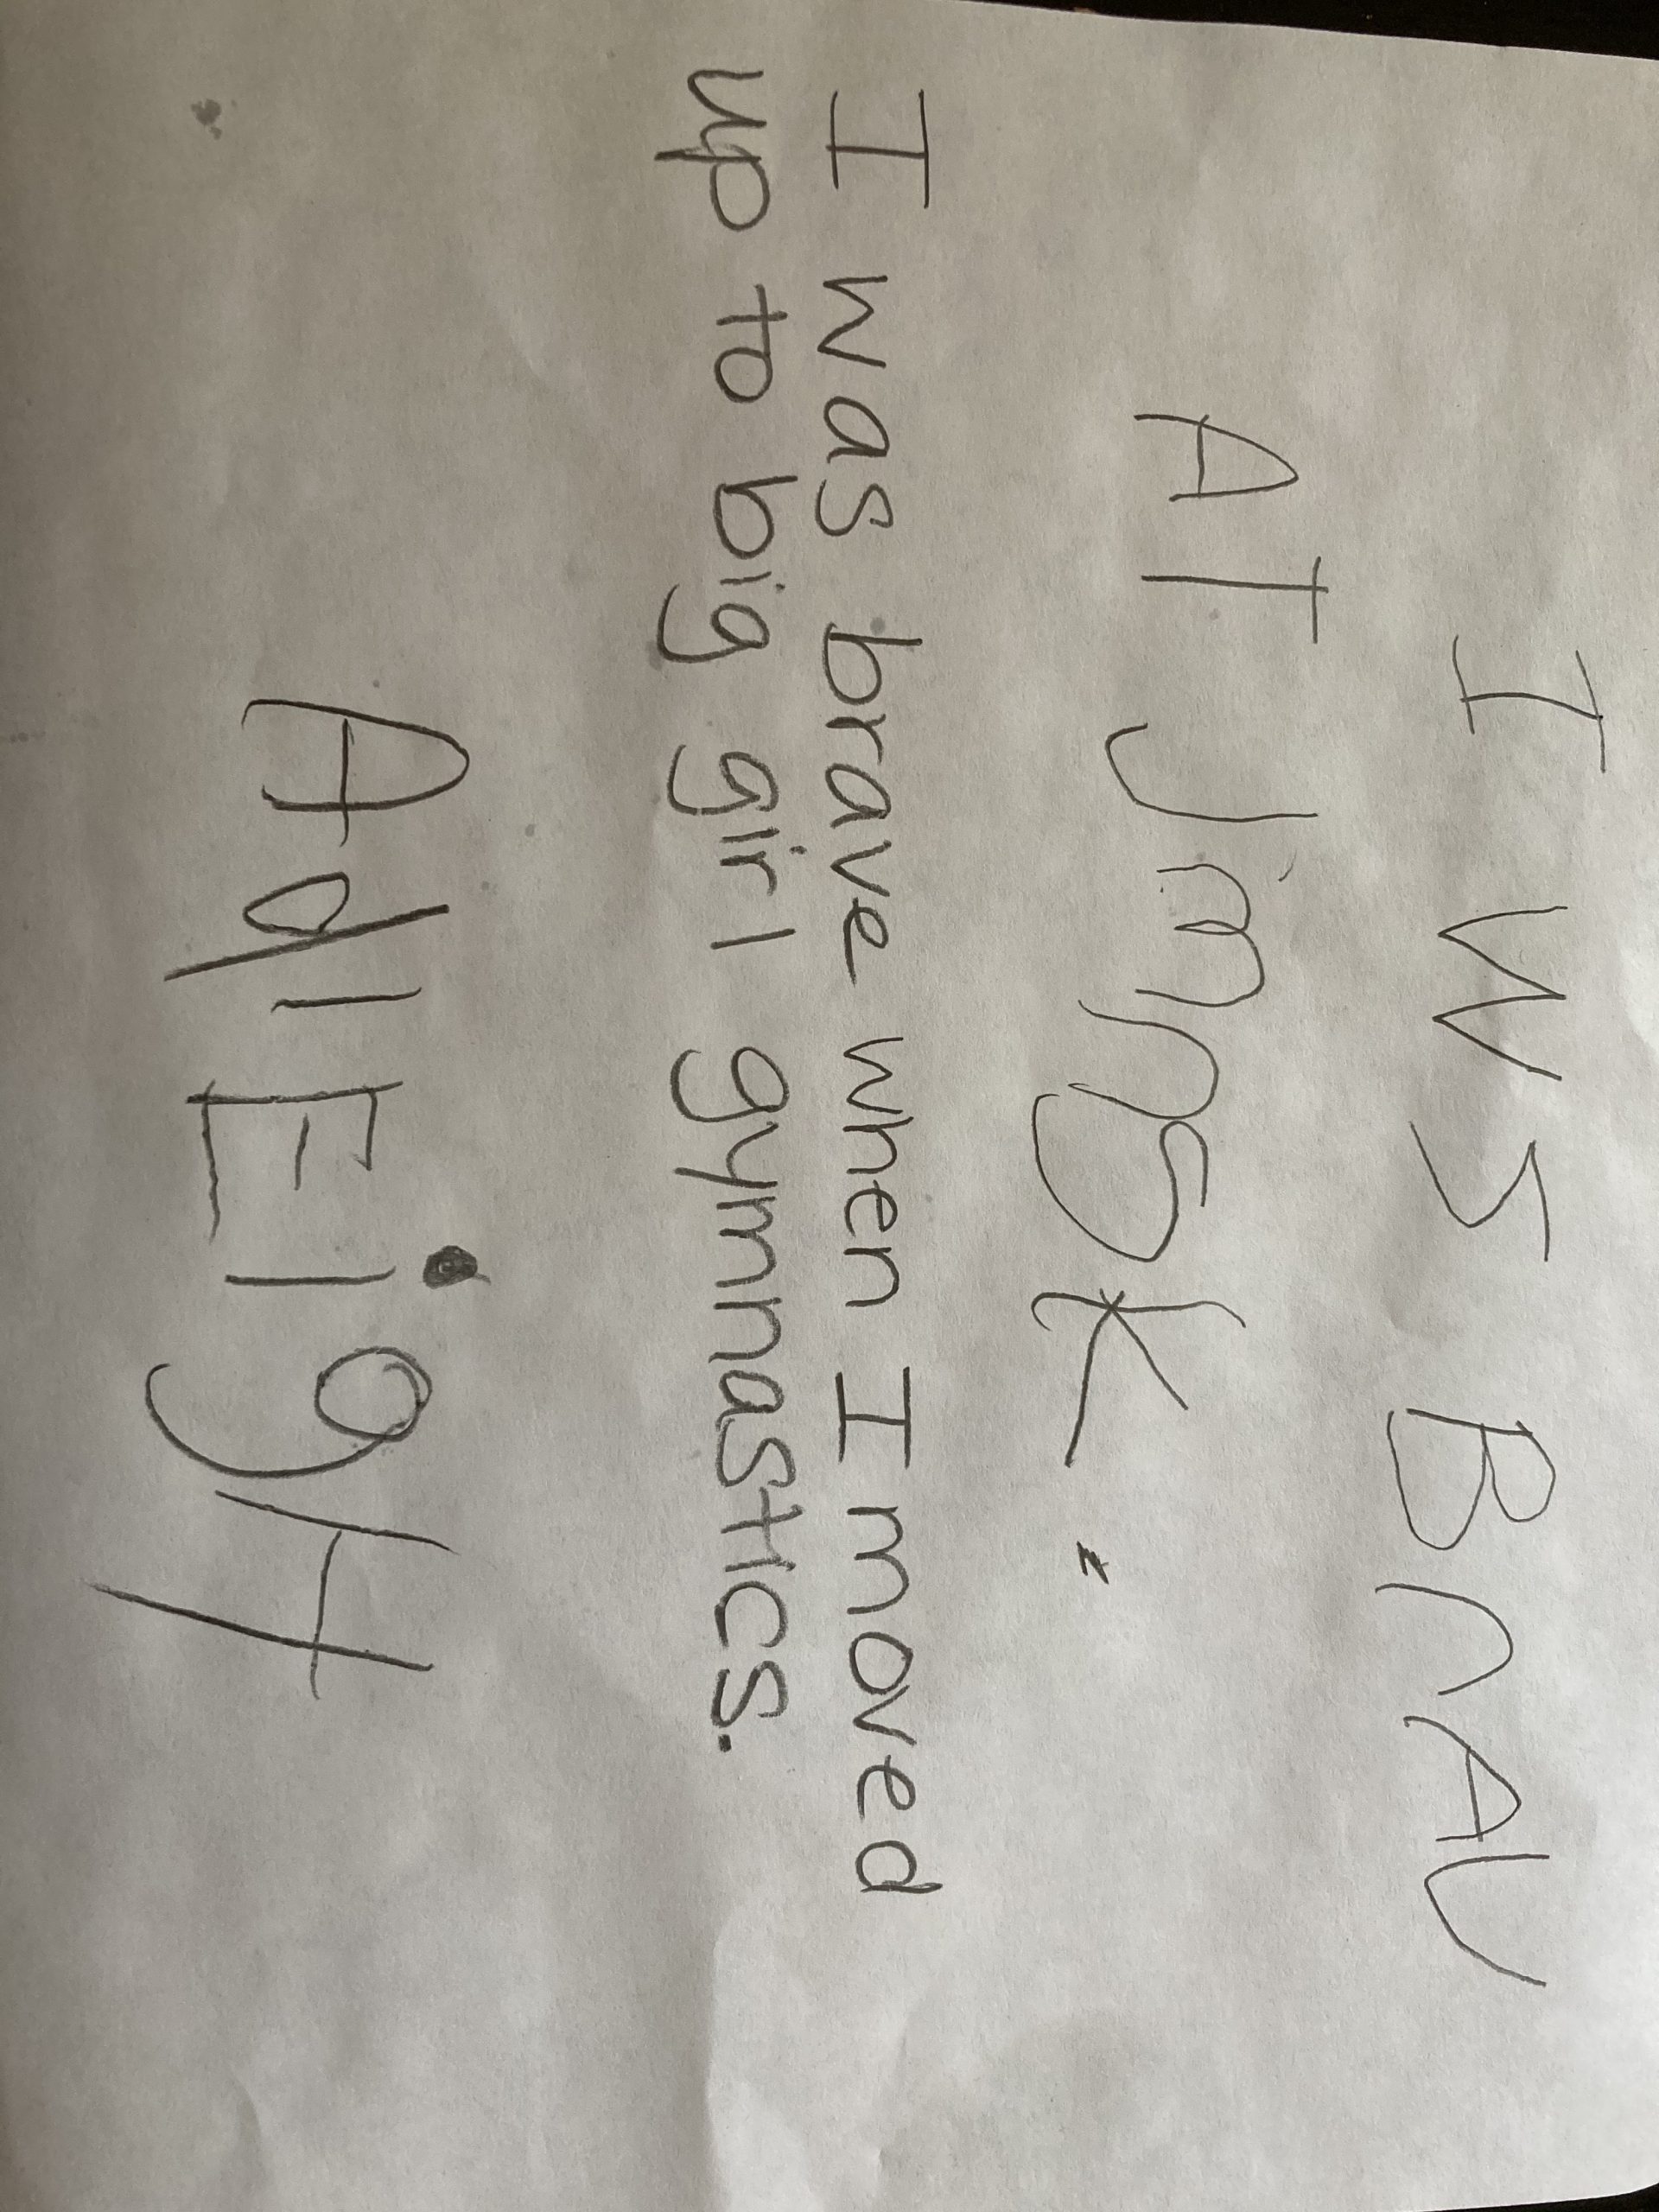 I WS BrAV
AT JimnSK.
I was brave when I moved
up to big girl gymnastics.
AdlEigH